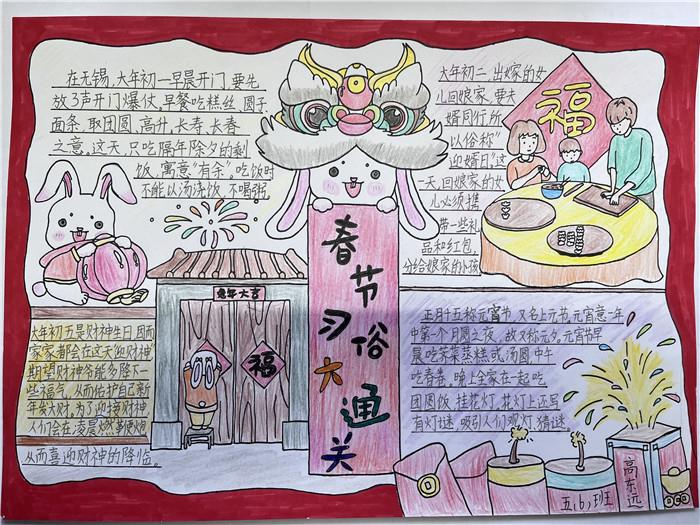 春节习俗大通关
在无锡,大年初一早晨开门,要先
放3声开门爆仗,早餐吃糕丝、圆子
面条,取团圆、高升、长寿、长春
之意。这天,只吃隔年除夕的剩
饭,寓意“有余”。吃饭时
不能以汤浇饭,不喝粥。
大年初二,出嫁的女
儿回娘家,要夫
婿同行,所
以俗称“
迎婿日”。这
一天,回娘家的女
儿必须携
带一些礼
品和红包,
分给娘家的小孩
福
兔年大吉
福
大年初五是财神生日,因而
家家都会在这天迎财神
期望财神爷能多降下一
些福气,从而佑护自己新
年发大财。为了迎接财神
人们会在凌晨燃革便炮
从而喜迎财神的降临。
正月十五称元宵节,又名上元节,元宵意一年
中第一个月圆之夜,故又称元夕。元宵节早
晨吃荠菜蒸糕或汤圆,中午
吃春卷,晚上全家在一起吃
团圆饭,挂花灯。花灯上还写
有灯谜,吸引人们观灯、猜谜。
五(6)班
高东远